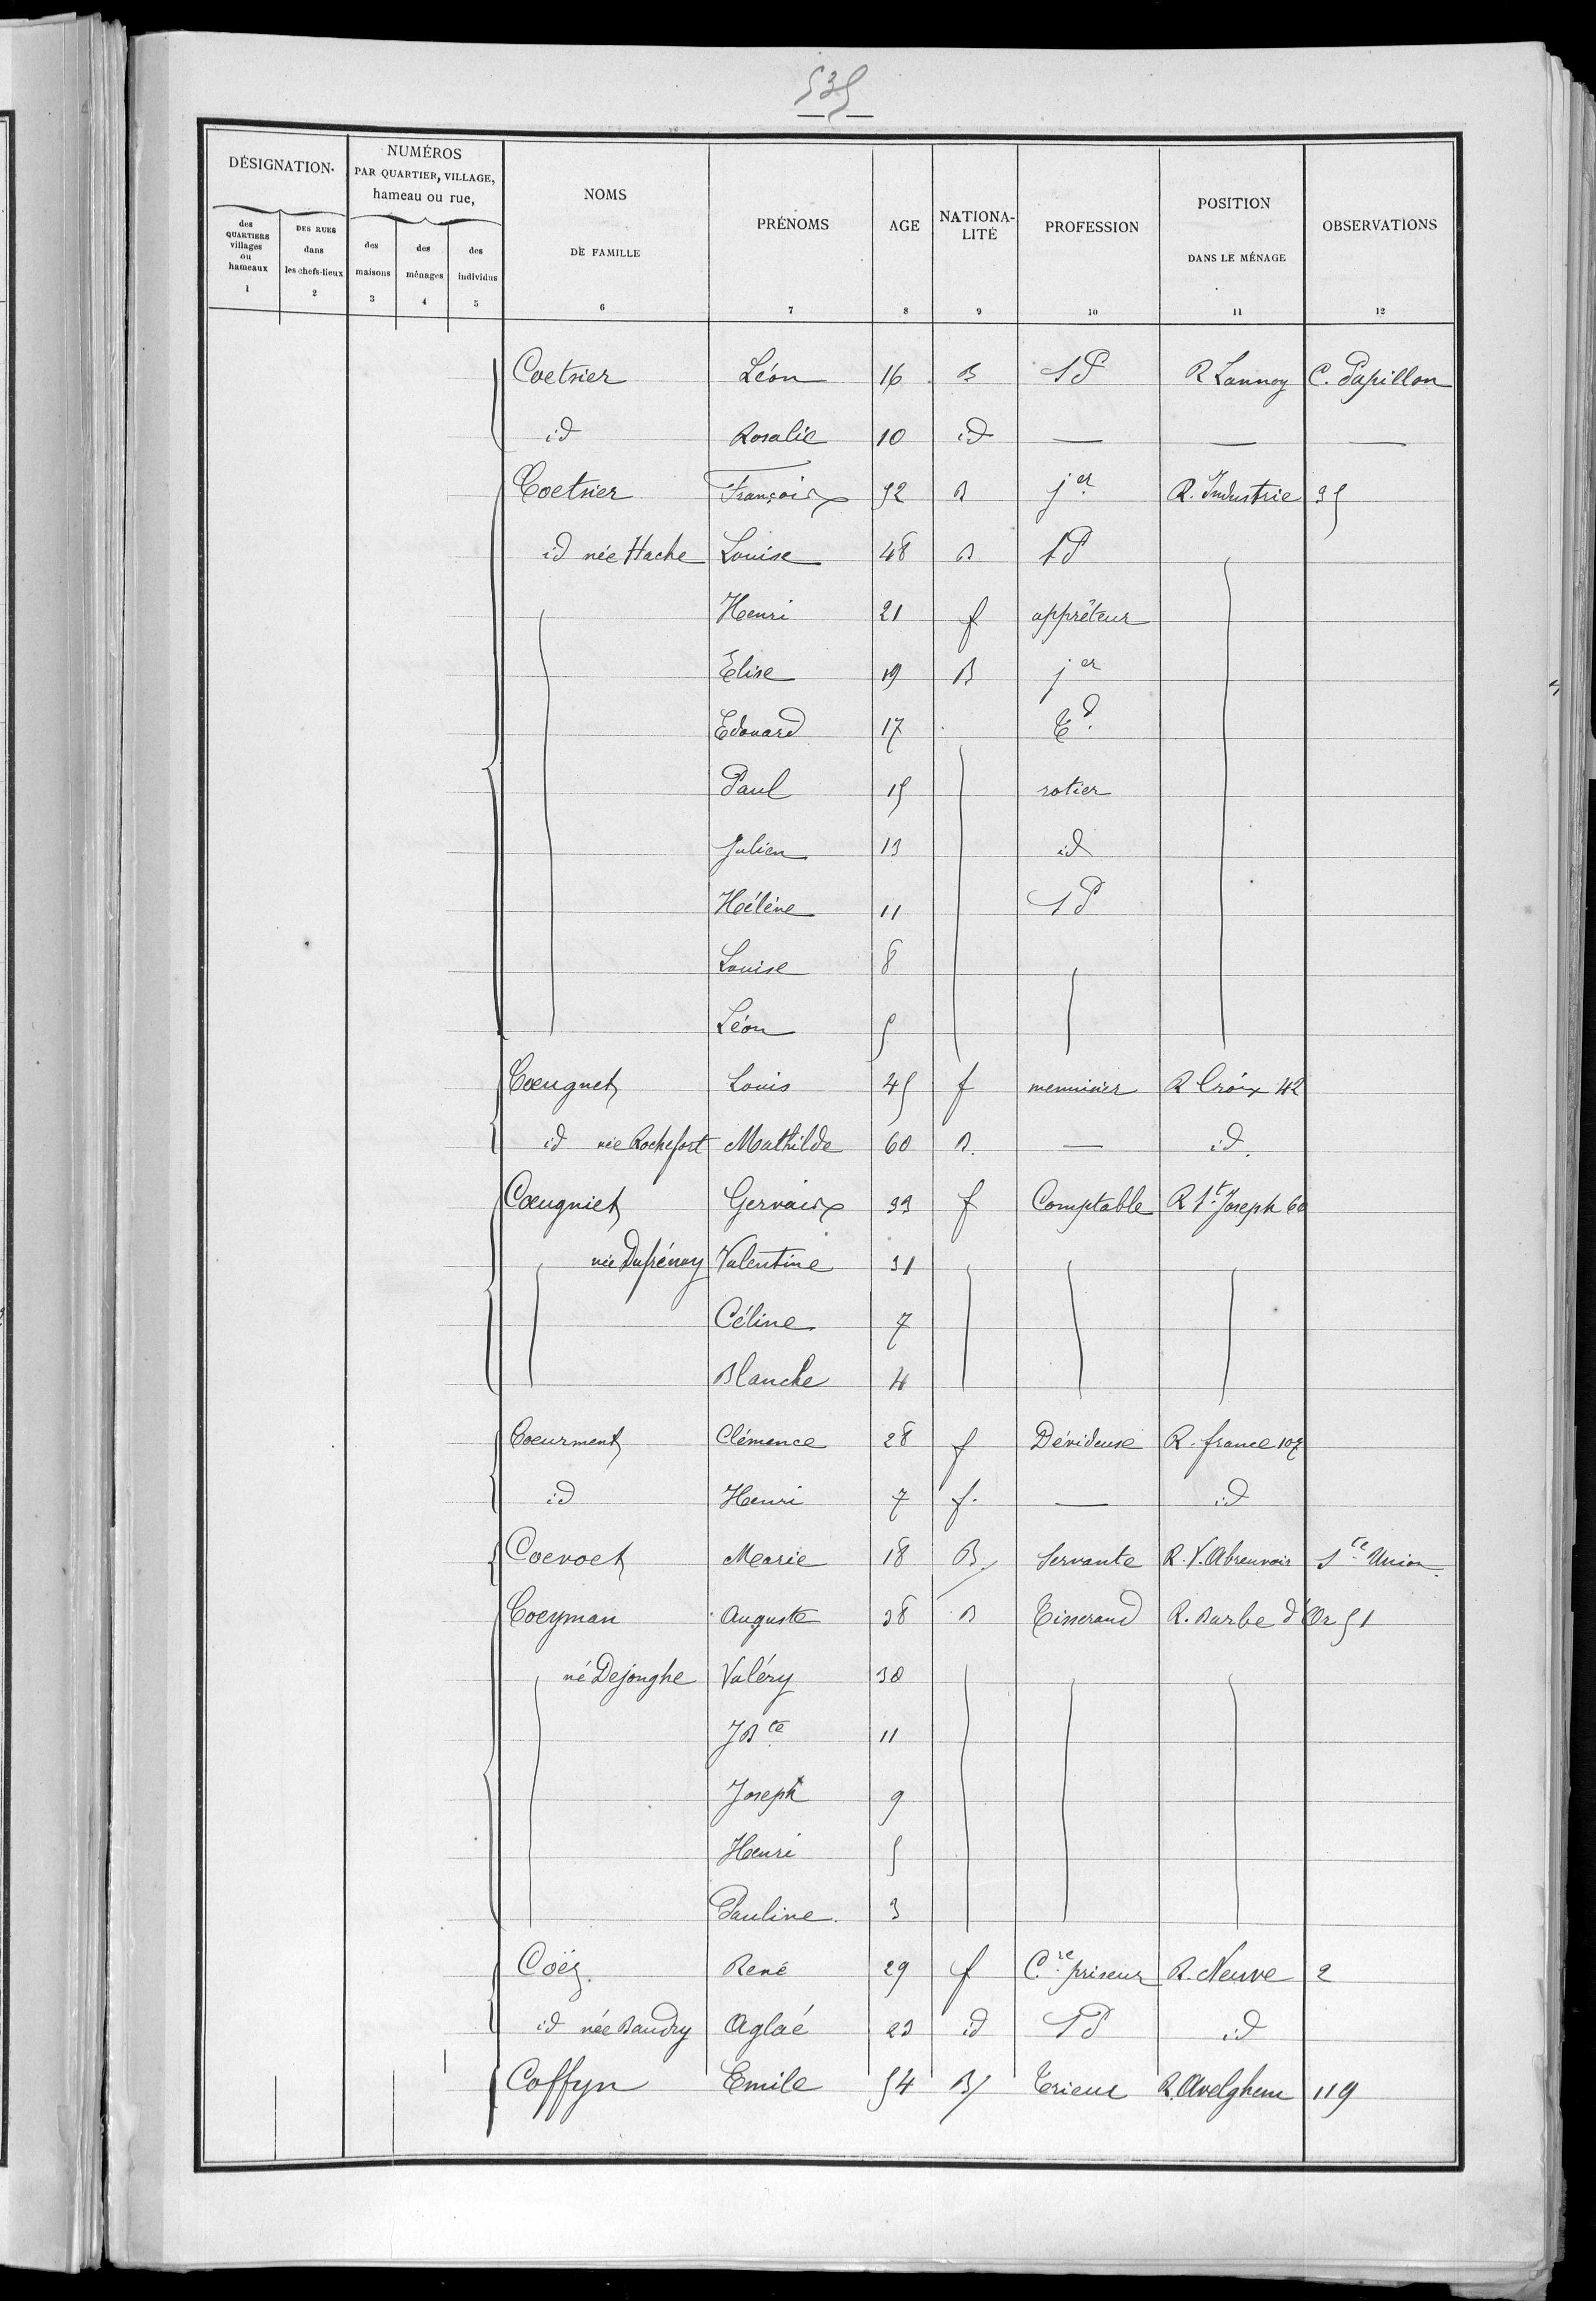 535
DÉSIGNATION.
NUMÉROS
PAR QUARTIER, VILLAGE,
hameau ou rue,
des QUARTIERS villages ou hameaux 1
DES RUES dans les chefs-lieux 2
des maisons 3
des ménages 4
des individus 5
NOMS DE FAMILLE 6
PRÉNOMS 7
AGE 8
NATIONA-LITÉ 9
PROFESSION 10
POSITION DANS LE MÉNAGE 11
OBSERVATIONS 12
Coetsier Léon 16 B SP R Lannoy C. Papillon
id Rosalie 10 id — — —
Coetsier François 52 B jer R. Industrie 35
id née Hache Louise 48 B SP
Henri 21 f apprêteur
Elise 19 B jer
Edouard 17 Td
Paul 15 rotier
Julien 13 id
Hélène 11 SP
Louise 8
Léon 5
Coeugnet Louis 45 f menuisier R Croix 42
id née Rochefort Mathilde 60 B. — id.
Coeugniet Gervais 33 f Comptable R St Joseph 60
née Dufrénoy Valentine 31
Céline 7
Blanche 4
Coeurment Clémence 28 f Dévideuse R. france 107
id Henri 7 f. — id
Coevoet Marie 18 B. Servante R. V. Abreuvoir Ste Union
Coeyman Auguste 38 B Tisserand R. Barbe d'Or 51
né Dejonghe Valéry 30
JBte 11
Joseph 9
Henri 5
Pauline. 3
Coëz. René 29 f Cre priseur R. Neuve 2
id née Baudry Aglaé 23 id SP id
Coffyn Emile 54 B Trieur R. Avelghem 119